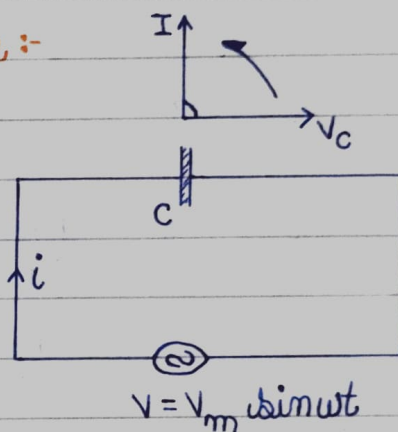 :-
I
V_C
C
i
V = V_m sin ωt